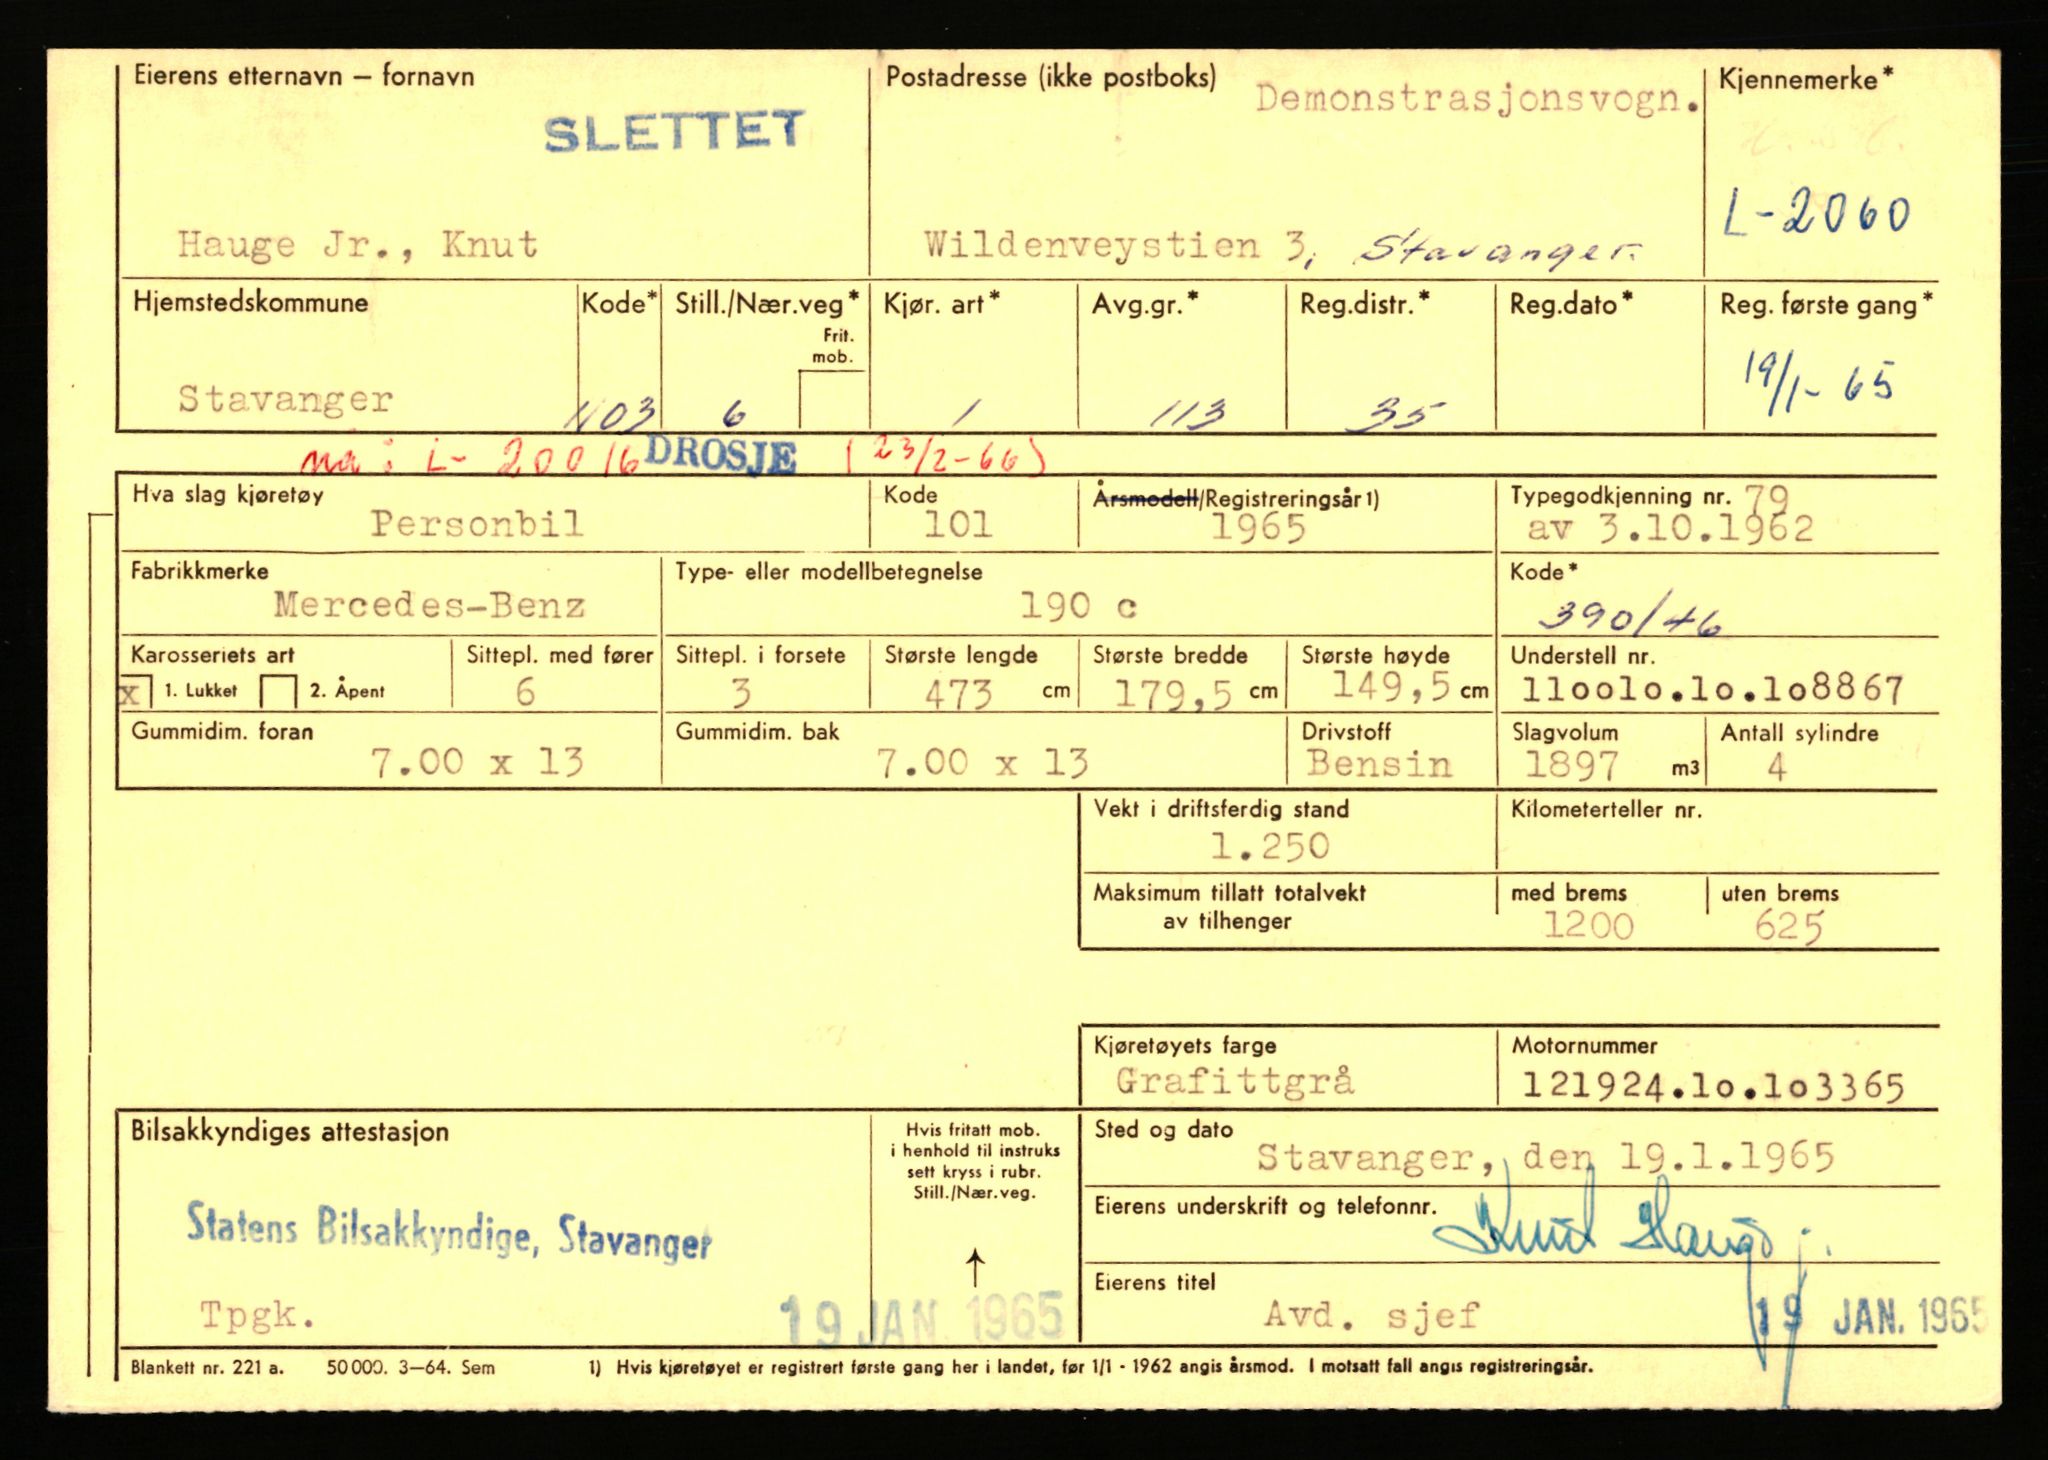 Eierens etternavn – fornavn
SLETTET
Hauge Jr., Knut
Postadresse (ikke postboks)
Demonstrasjonsvogn.
Wildenveystien 3, Stavanger
Kjennemerke*
L-2060
Hjemstedskommune
Stavanger
Kode*
1103
Still./Nær.veg*
Frit. mob.
6
Kjør. art*
1
Avg.gr.*
113
Reg.distr.*
35
Reg.dato*
Reg. første gang*
19/1-65
nå: L-20016 DROSJE (23/2-66)
Hva slag kjøretøy
Personbil
Kode
101
Årsmodell/Registreringsår 1)
1965
Typegodkjenning nr. 79
av 3.10.1962
Fabrikkmerke
Mercedes-Benz
Type- eller modellbetegnelse
190 c
Kode*
390/46
Karosseriets art
x 1. Lukket 2. Åpent
Sittepl. med fører
6
Sittepl. i forsete
3
Største lengde
473 cm
Største bredde
179,5 cm
Største høyde
149,5 cm
Understell nr.
11oo1o.1o.1o8867
Gummidim. foran
7.00 x 13
Gummidim. bak
7.00 x 13
Drivstoff
Bensin
Slagvolum
1897 m3
Antall sylindre
4
Vekt i driftsferdig stand
1.250
Kilometerteller nr.
Maksimum tillatt totalvekt
av tilhenger
med brems
1200
uten brems
625
Kjøretøyets farge
Grafittgrå
Motornummer
121924.1o.1o3365
Bilsakkyndiges attestasjon
Statens Bilsakkyndige, Stavanger
Tpgk.
19 JAN. 1965
Hvis fritatt mob.
i henhold til instruks
sett kryss i rubr.
Still./Nær.veg.
Sted og dato
Stavanger, den 19.1.1965
Eierens underskrift og telefonnr.
Knut Hauge j.
Eierens titel
Avd. sjef
19 JAN. 1965
Blankett nr. 221 a. 50 000. 3–64. Sem
1) Hvis kjøretøyet er registrert første gang her i landet, før 1/1 - 1962 angis årsmod. I motsatt fall angis registreringsår.